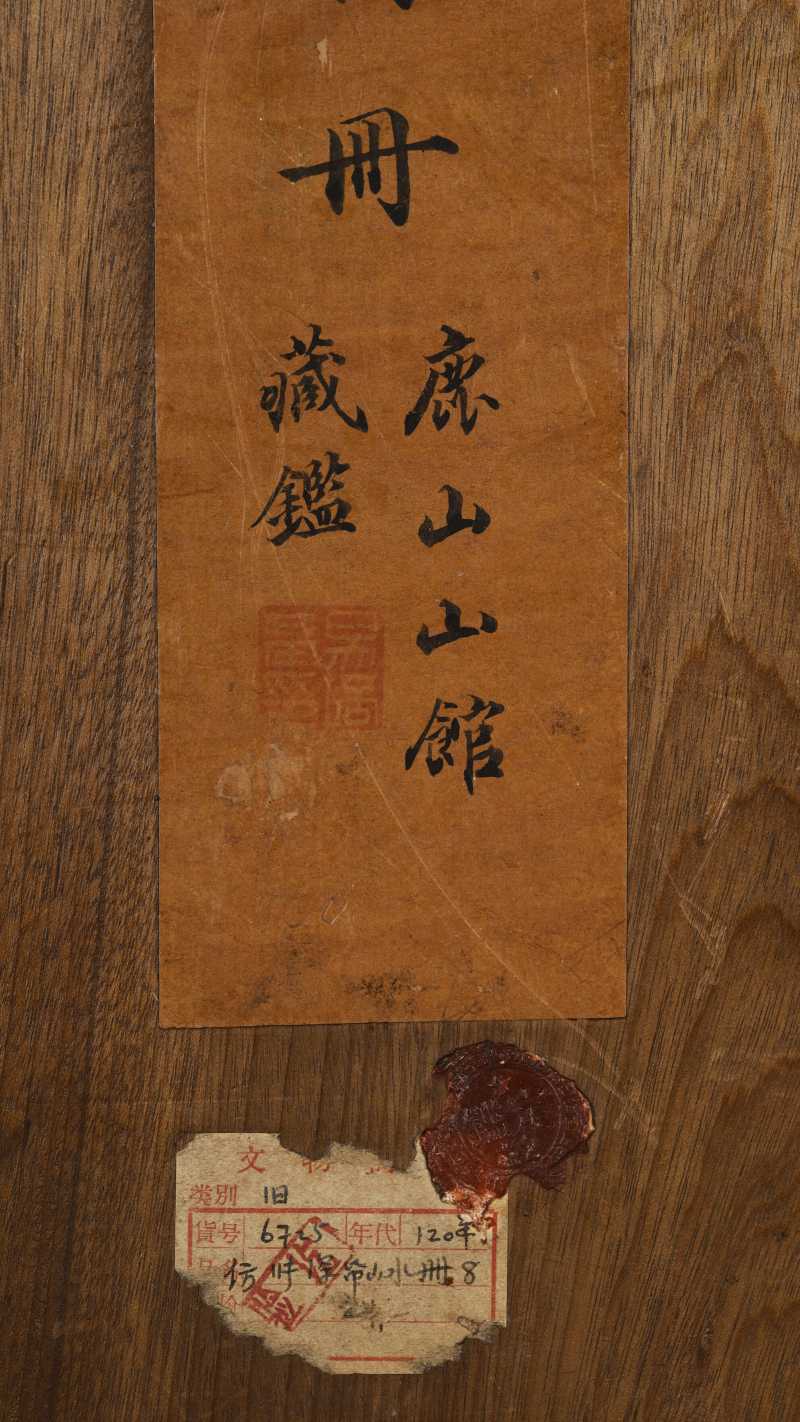 冊
鹿山山館
藏鑑
文物
类別 旧
貨号 6725 年代 120年
仿 山水冊 8